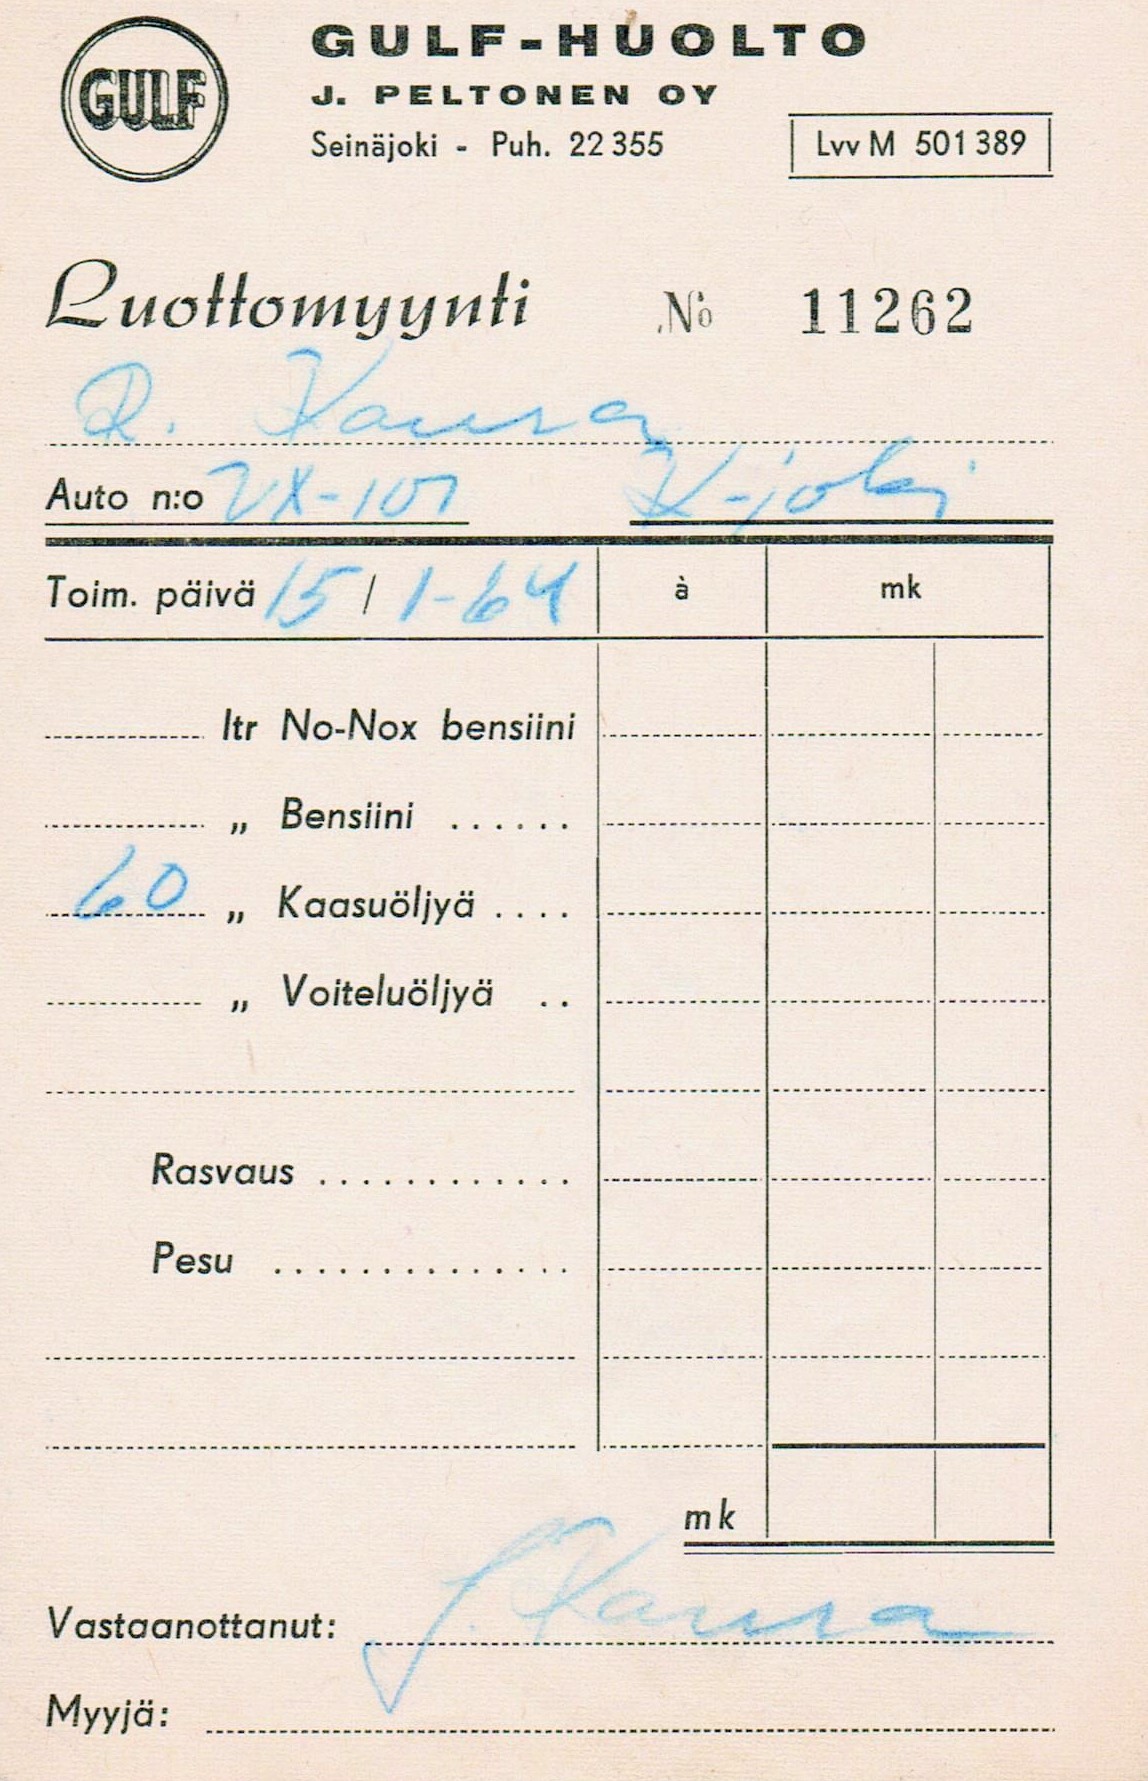 GULF
GULF-HUOLTO
J. PELTONEN OY
Seinäjoki - Puh. 22 355
Lvv M 501 389
Luottomyynti № 11262
R. Kaura
Auto n:o VX-101 K-joki
Toim. päivä 15 / 1-64 à mk
ltr No-Nox bensiini
„ Bensiini ......
60 „ Kaasuöljyä ....
„ Voiteluöljyä ..
Rasvaus ............
Pesu ..............
mk
Vastaanottanut: J. Kaura
Myyjä: